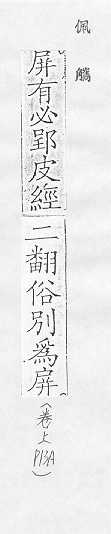 佩觿
屏有必郢皮經
二翻俗別爲屛
(卷上
P13A)